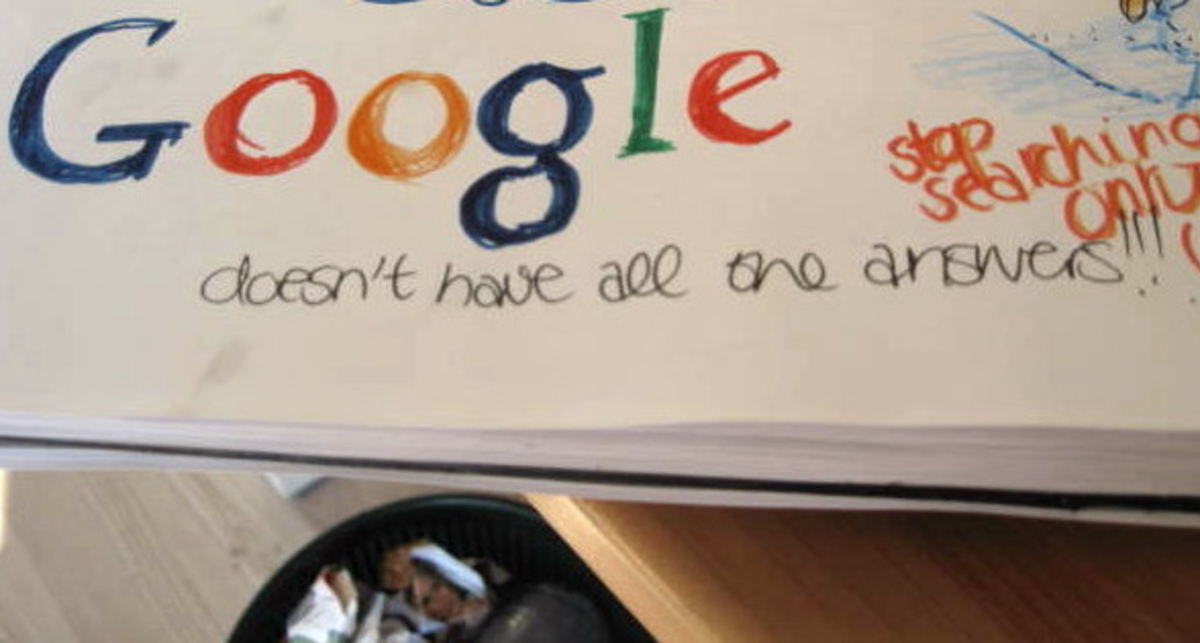 Google
doesn't have all the answers!!!
stop
searching
only